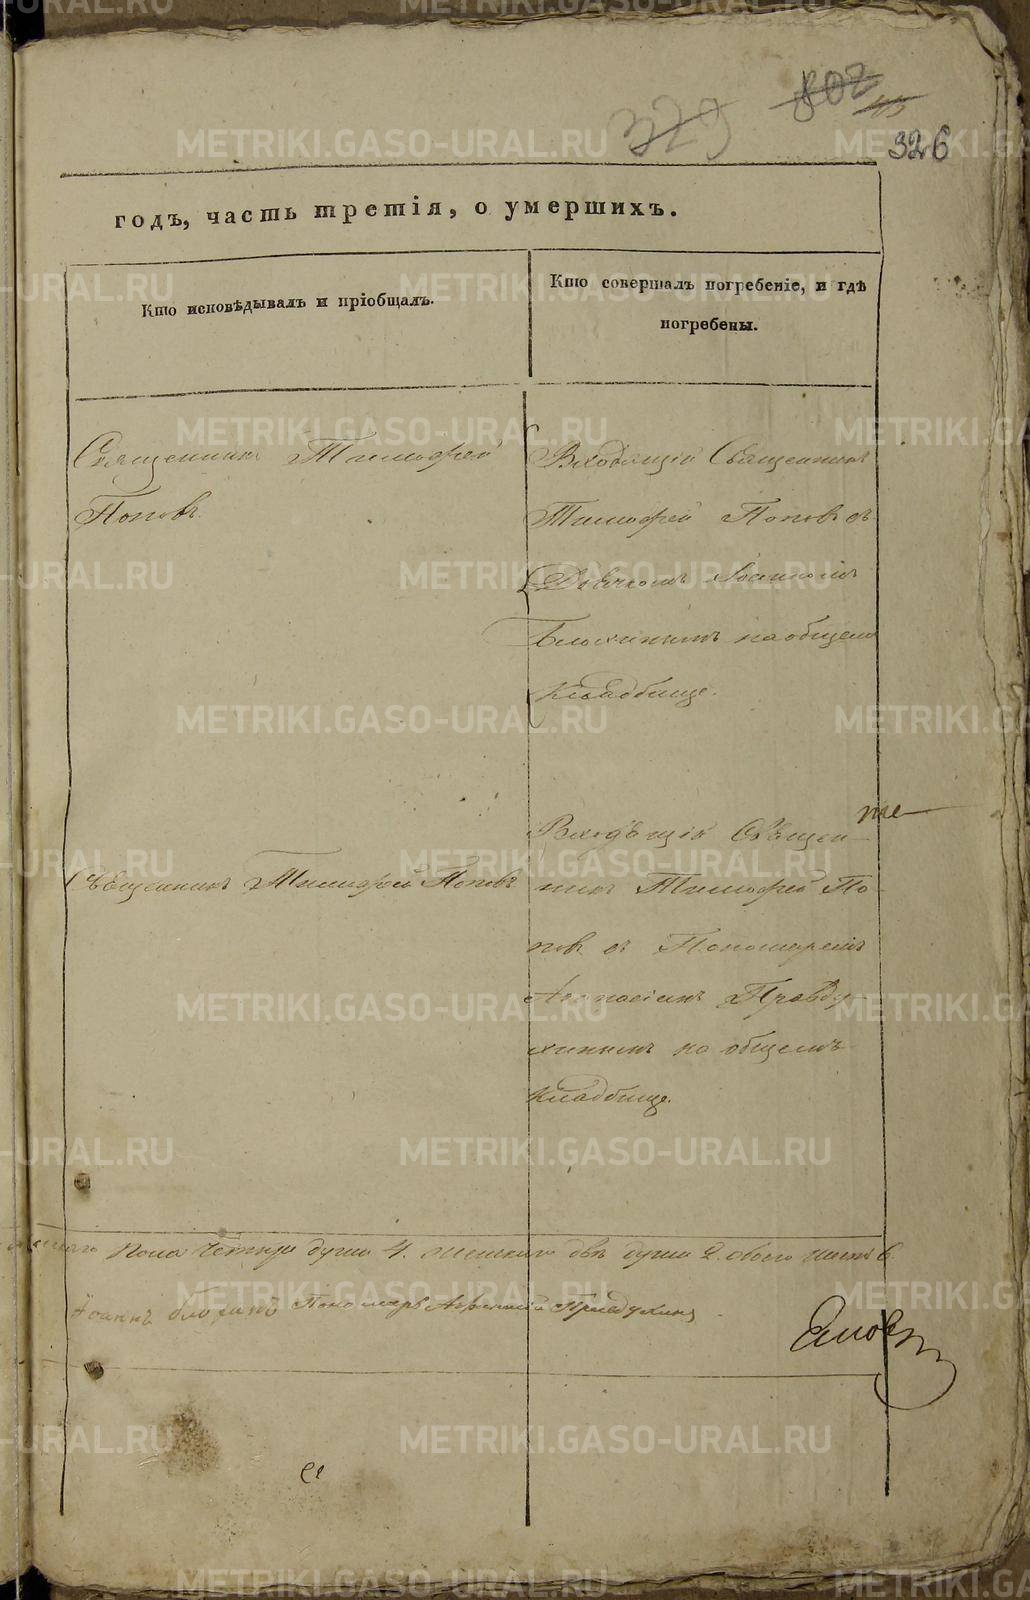 329 802 45
326
годъ, часть третія, о умершихъ.
Кто исповѣдывалъ и пріобщалъ.
Кто совершалъ погребеніе, и гдѣ
погребены.
Священникъ Тимофей
Поповъ.
Входящій Священникъ
Тимофей Поповъ съ
Дьячкомъ Іоанномъ
Блохинымъ на общемъ
Кладбище.
Священникъ Тимофей Поповъ
Входящій Священ-
никъ Тимофей По-
повъ съ Пономаремъ
Афанасіемъ Правду-
хинымъ на общемъ
Кладбище.
пола четыре души 4. женскаго двѣ души 2. обоего шесть 6.
Іоаннъ Блохинъ Пономарь Афанасій Правдухинъ
METRIKI.GASO-URAL.RU